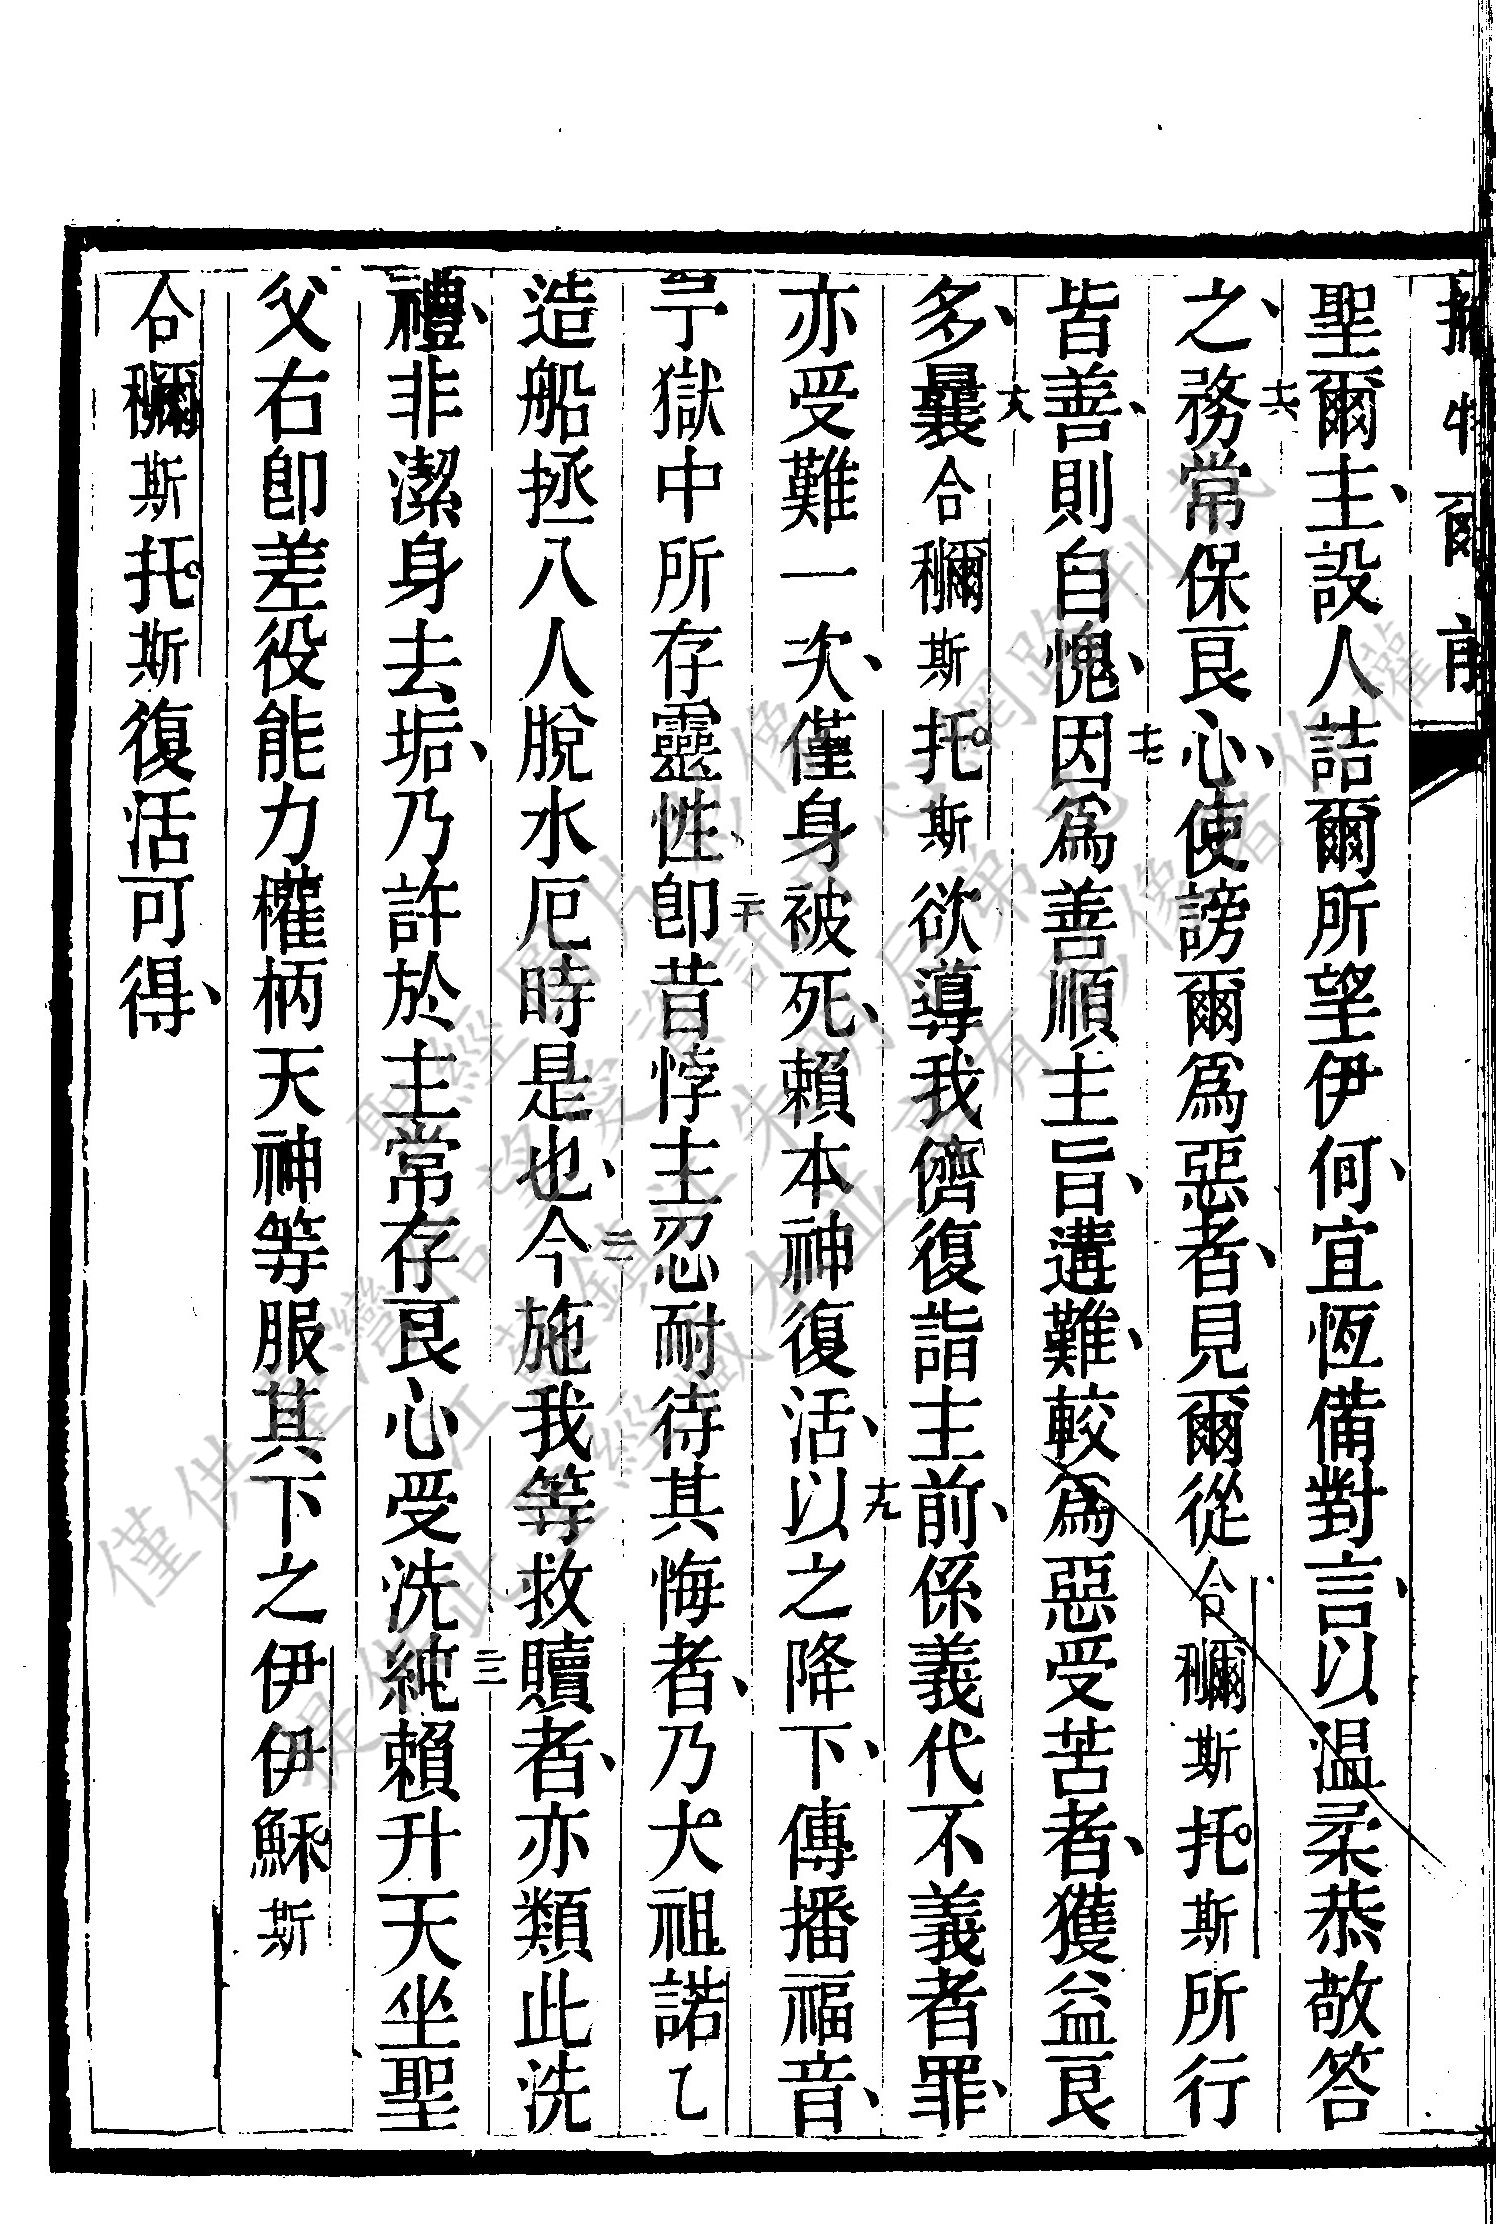 聖爾主、設人詰爾所望伊何、宜恆備對言、以温柔恭敬答
之、十六務常保良心、使謗爾爲惡者、見爾從合穪斯托斯所行
皆善、則自愧、十七因爲善順主旨、遘難、較爲惡受苦者、獲益良
多、十八曩合穪斯托斯欲導我儕復詣主前、係義代不義者罪、
亦受難一次、僅身被死、賴本神復活、十九以之降下、傳播福音、
于獄中所存靈性、二十卽昔悖主忍耐待其悔者、乃犬祖諾乙
造船拯八人脫水厄時是也、二一今施我等救贖者、亦類此洗
禮、非潔身去垢、乃許於主常存良心受洗純二二賴升天坐聖
父右卽差役能力權柄天神等服其下之伊伊穌斯
合穪斯托斯復活可得、
爾 前
僅供